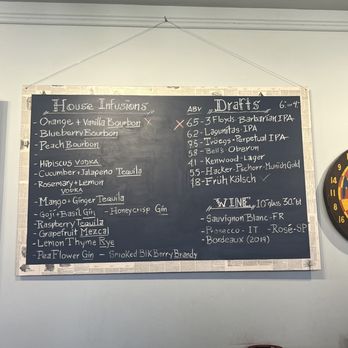 House Infusions
- Orange + Vanilla Bourbon x
- Blueberry Bourbon
- Peach Bourbon
-
- Hibiscus Vodka
- Cucumber + Jalapeno Tequila
- Rosemary + Lemon
Vodka
- Mango + Ginger Tequila
- Goji + Basil Gin - Honeycrisp Gin
- Raspberry Tequila
- Grapefruit Mezcal
- Lemon Thyme Rye
- Pea Flower Gin - Smoked Blk Berry Brandy
ABV Drafts
x 6.5 - 3 Floyds - Barbarian IPA
6.2 - Lagunitas - IPA
- Troegs - Perpetual IPA
5.8 - Bell's Oberon
4.1 - Kenwood - Lager
5.5 - Hacker-Pschorr - Munich Gold
4.8 - Früh Kölsch
WINE 10 glass 30 bt
- Sauvignon Blanc - FR
- Prosecco - IT - Rosé - SP
- Bordeaux (2019)